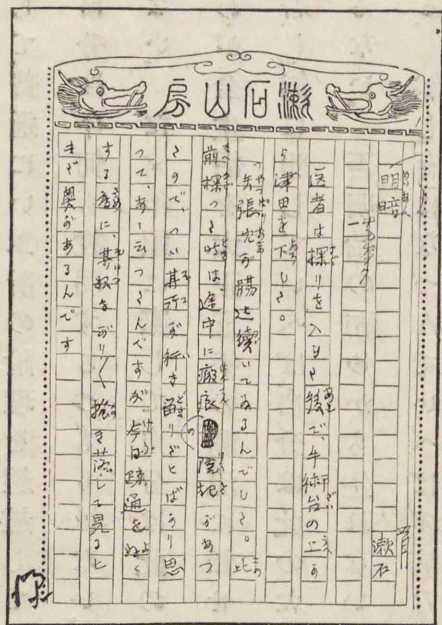 漱石山房
明暗
漱石
医者は探りを入れた後で、手術台の上か
ら津田を下した。
「矢張穴が腸迄続いてゐるんでした。此
前探つた時は途中に瘢痕の隆起があつ
たので、つい其所が行き留りだとばかり思
つて、あゝ云つたんですが、今日疎通を好く
する為に、其奴をがり〳〵掻き落して見ると
まだ奥があるんです